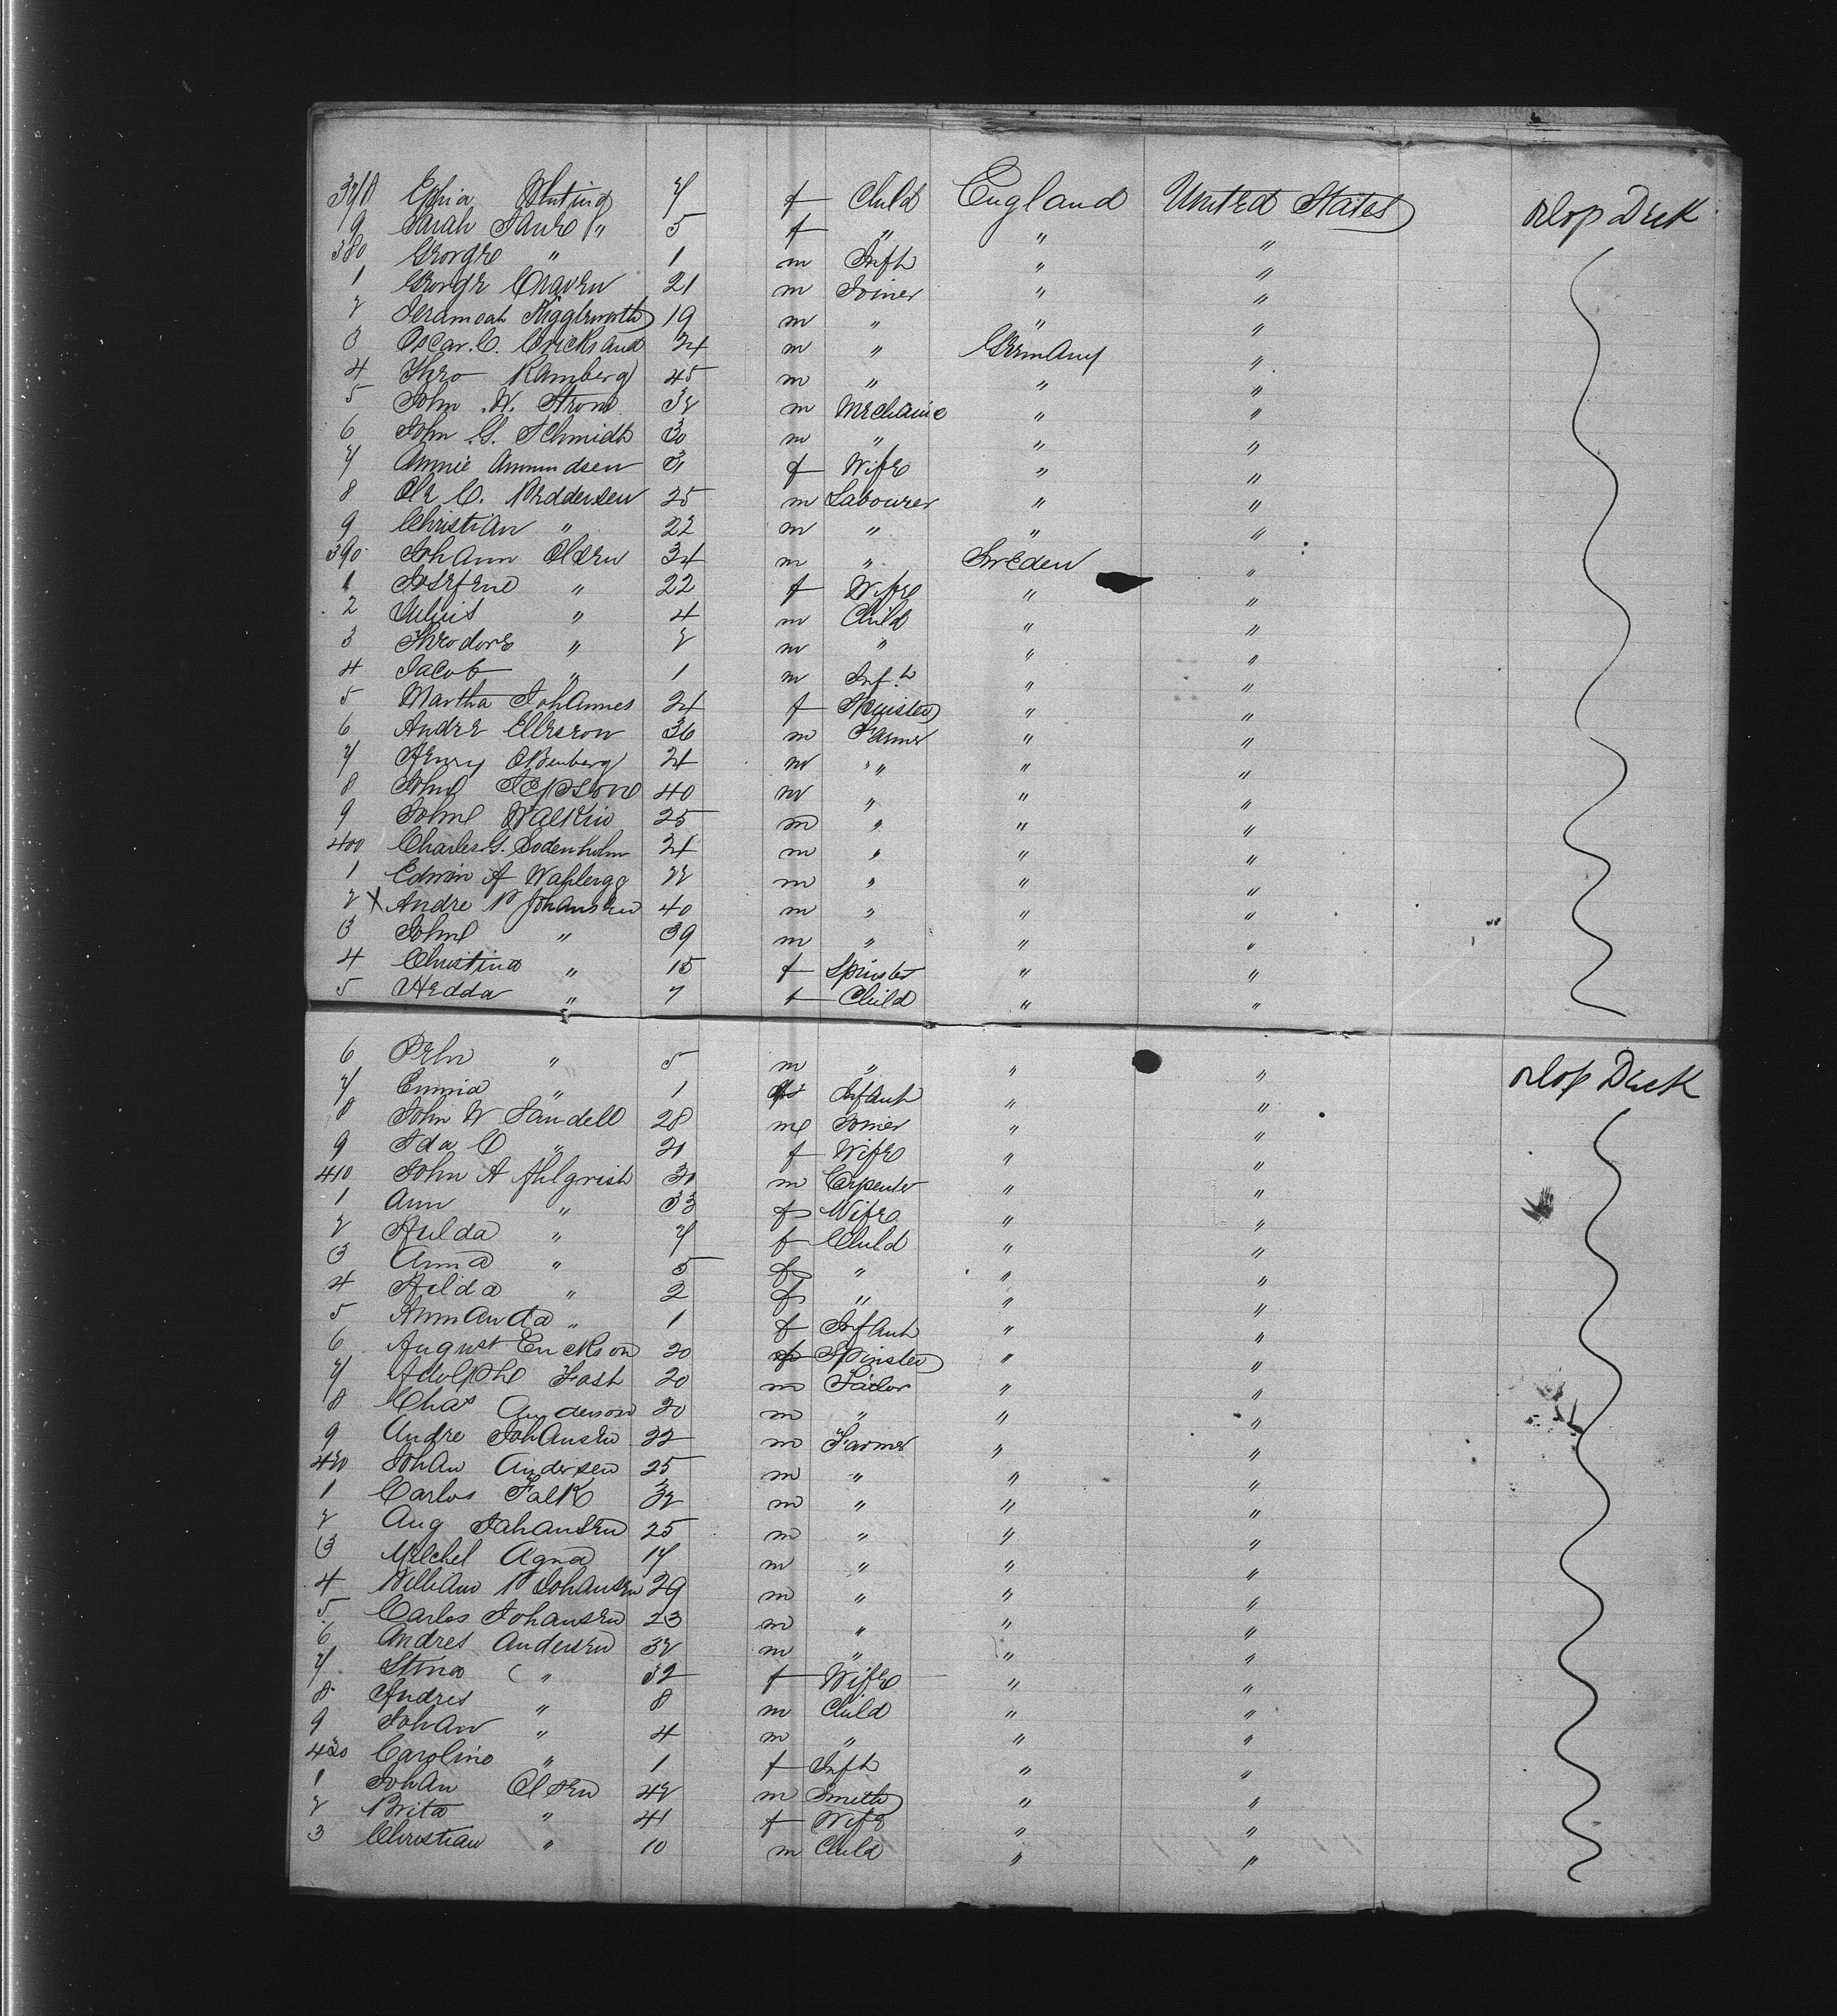 378 Whiting 7 f Child England United States Orlop Deck
9 Sarah Jane " 5 f " " "
380 George " 1 m Inft " "
1 George Craven 21 m Joiner " "
2 Jeramoah Kigglsworth 19 m " " "
3 Oscar. C. 24 m " Germany "
4 Theo Ramberg 45 m " " "
5 John .W. Strom 32 m Mechanic " "
6 John G. Schmidt 30 m " " "
7 Annie Ammundsen 31 f Wife " "
8 Ole C. Peddersen 25 m Labourer " "
9 Christian " 22 m " " "
390 Johann Olsen 34 m " Sweden "
1 Josefene " 22 f Wife " "
2 Julius " 4 m Child " "
3 Theodore " 2 m " " "
4 Jacob " 1 m Inft " "
5 Martha Johannes 24 f Spinster " "
6 Andre 36 m Farmer " "
7 Henry 24 m " " "
8 John Jepson 40 m " " "
9 John Walkin 25 m " " "
400 Charles G. Sodenholm 24 m " " "
1 Edwin A Wahlergg 22 m " " "
2 X Andre P Johansen 40 m " " "
3 John " 39 m " " "
4 Christina " 15 f Spinster " "
5 Hedda " 7 f Child " "
6 " 5 m " " " Orlop Deck
7 Emma " 1 Infant " "
8 John W Sandell 28 m Joiner " "
9 Ida C " 21 f Wife " "
410 John A Ahlgrish 31 m Carpenter " "
1 Ann " 33 f Wife " "
2 Hulda " 7 f Child " "
3 Anna " 5 f " " "
4 Hilda " 2 f " " "
5 Ammanda " 1 f Infant " "
6 August Erickson 20 f Spinster " "
7 Adolphe Fast 20 m Tailor " "
8 Chas Anderson 20 m " " "
9 Andre Johansen 22 m Farmer " "
420 Johan Andersen 25 m " " "
1 Carlos Falk 32 m " " "
2 Aug Johansen 25 m " " "
3 Melchel Agna 17 m " " "
4 William P Johansen 29 m " " "
5 Carlos Johansen 23 m " " "
6 Andres Andersen 32 m " " "
7 Stina " 32 f Wife " "
8 Andres " 8 m Child " "
9 Johan " 4 m " " "
430 Caroline " 1 f Inft " "
1 Johan Olsen 42 m Smith " "
2 Brita " 41 f Wife " "
3 Christian " 10 m Child " "